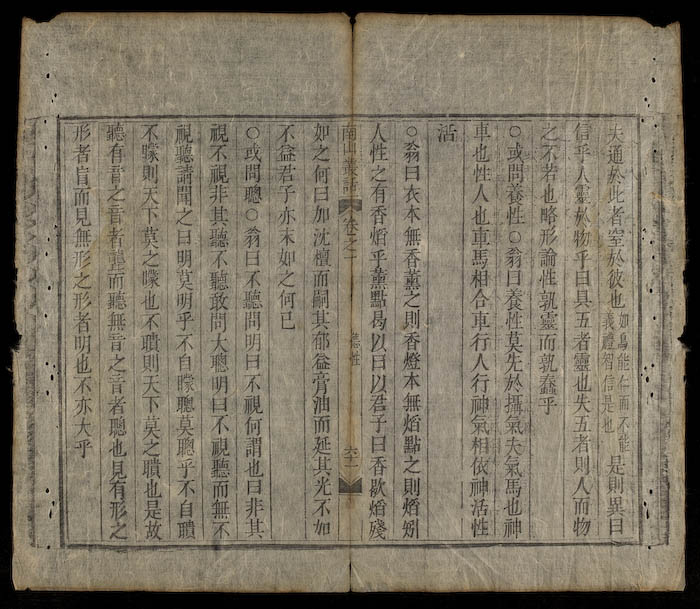 夫通於此者窒於彼也如烏能仁而不能義禮智信是也是則異曰
信乎人靈於物乎曰具五者靈也失五者則人而物
之不若也略形論性孰靈而孰蠢乎
○或問養性○翁曰養性莫先於攝氣夫氣馬也神
車也性人也車馬相合車行人行神氣相依神活性
活
○翁曰衣本無香薰之則香燈本無熖點之則熖矧
人性之有香熖乎薰點曷以曰以君子曰香歇熖殘
南山叢話 卷之一 養性 六十一
如之何曰加沈檀而嗣其郁益膏油而延其光不如
不益君子亦末如之何已
○或問聰○翁曰不聽問明曰不視何謂也曰非其
視不視非其聽不聽敢問大聰明曰不視聽而無不
視聽請聞之曰明莫明乎不自矇聰莫聰乎不自聵
不矇則天下莫之矇也不聵則天下莫之聵也是故
聽有音之音者聾而聽無音之音者聰也見有形之
形者盲而見無形之形者明也不亦大乎